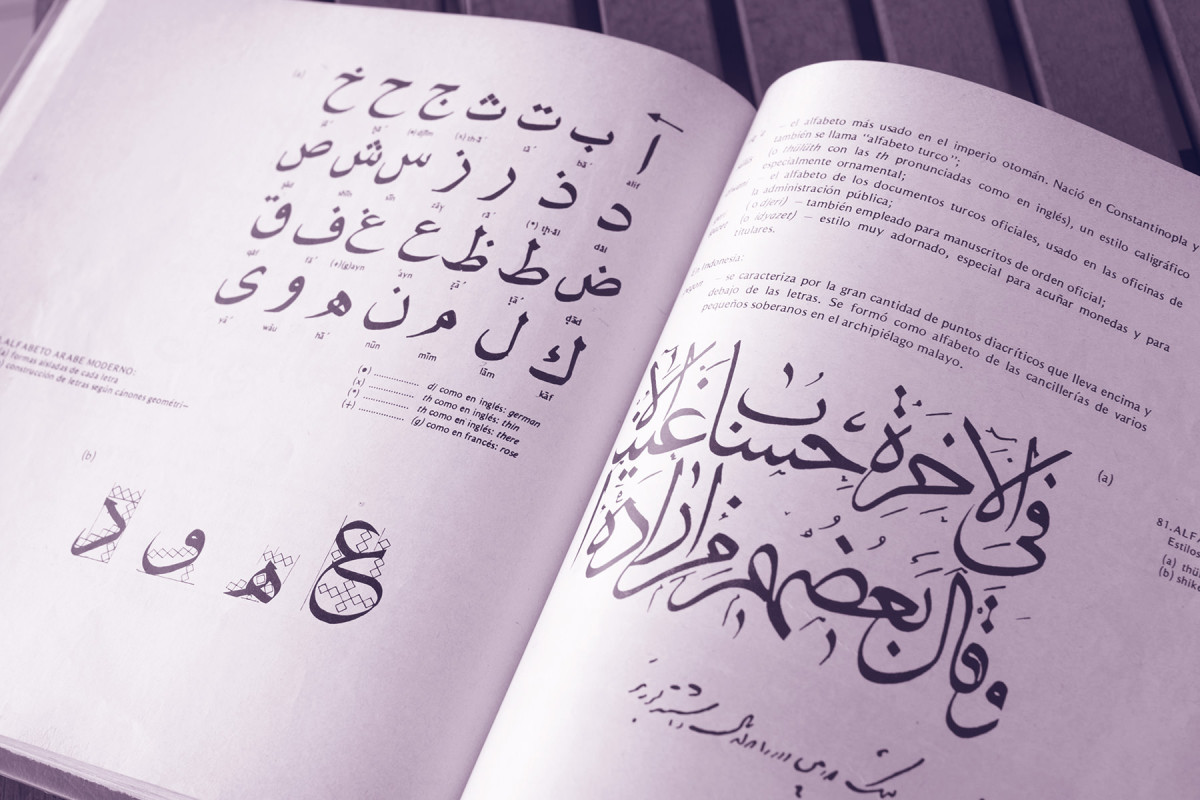 (a)
ا ب ت ث ج ح خ
alif
د ذ ر ز س ش ص
dāl
ض ط ظ ع غ ف ق
ḍād
ك ل م ن ه و ى
kāf lām mīm nūn hā' wāu yā'
ALFABETO ARABE MODERNO:
(a) formas aisladas de cada letra
construcción de letras según cánones geométri—
(•) ............ dj como en inglés: german
(x) ............ th como en inglés: thin
(*) ............ th como en inglés: there
(+) ............ (g) como en francés: rose
(b)
د و ه ع
— el alfabeto más usado en el imperio otomán. Nació en Constantinopla y
también se llama "alfabeto turco";
(o thülüth con las th pronunciadas como en inglés), un estilo caligráfico
especialmente ornamental;
— el alfabeto de los documentos turcos oficiales, usado en las oficinas de
la administración pública;
(o djeri) — también empleado para manuscritos de orden oficial;
(o idyazet) — estilo muy adornado, especial para acuñar monedas y para
titulares.
Indonesia:
— se caracteriza por la gran cantidad de puntos diacríticos que lleva encima y
debajo de las letras. Se formó como alfabeto de las cancillerías de varios
pequeños soberanos en el archipiélago malayo.
(a)
فى الآخرة حسنا
وقال بعضهم
81. ALFA
Estilos
(a) thül
(b) shike